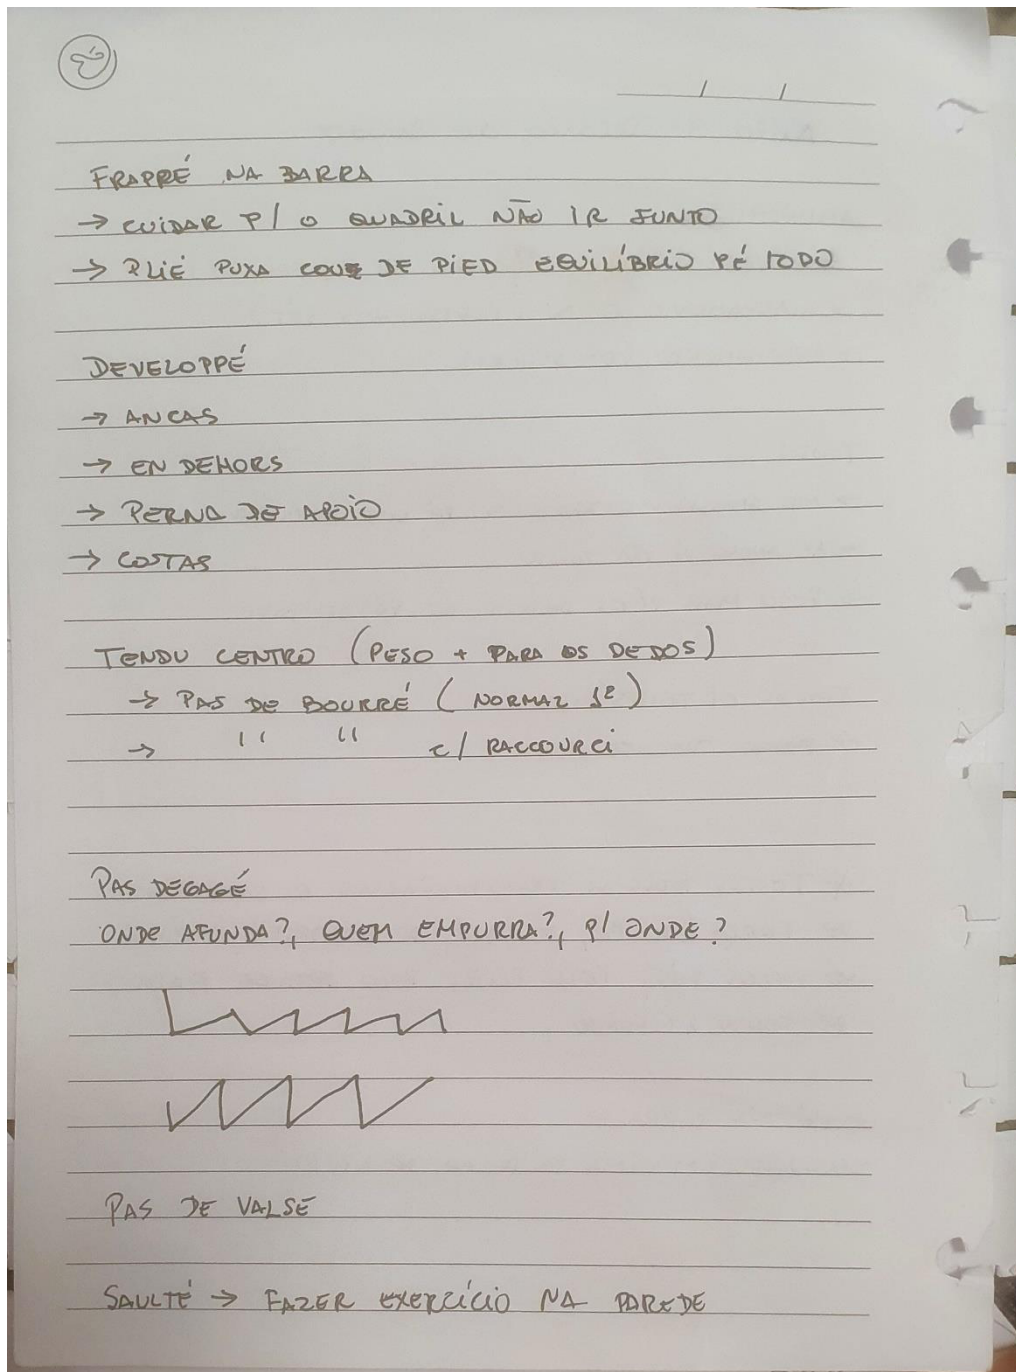 / /
FRAPRÉ NA BARRA
→ CUIDAR P/ O QUADRIL NÃO IR JUNTO
→ PLIÉ PUXA COU DE PIED EQUILÍBRIO PÉ TODO
DEVELOPPÉ
→ ANCAS
→ EN DEHORS
→ PERNA DE APOIO
→ COSTAS
TENDU CENTRO (PESO + PARA OS DEDOS)
→ PAS DE BOURRÉ (NORMAL 1º)
→ " " c/ RACCOURCI
PAS DEGAGÉ
ONDE AFUNDA?, QUEM EMPURRA?, P/ ONDE?
PAS DE VALSE
SAULTÉ → FAZER EXERCÍCIO NA PAREDE